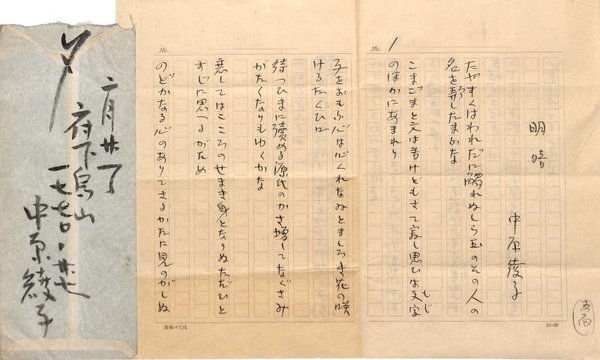 明暗
中原綾子
たやすくはわれだに触れぬしら玉のその人の
名を弄したまふかな
こまごまと文は書けどもさて寂し思ひは文字
もじ
のほかにあまれり
五首
No. 1
子をおもふ心は心くれなゐとましろき花の咲
けるたぐひに
待つひまに読める源氏のかさ増してなぐさみ
がたくなりもゆくかな
恋してはこころのせまき身となりぬただひと
すじに思へるがため
のどかなる心のありてさるかたに見のがしぬ
No.
10-20
府下烏山
中原綾子